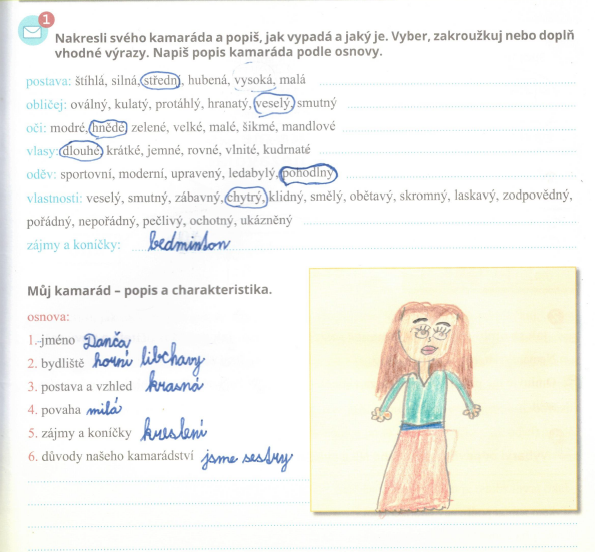 1
Nakresli svého kamaráda a popiš, jak vypadá a jaký je. Vyber, zakroužkuj nebo doplň
vhodné výrazy. Napiš popis kamaráda podle osnovy.
postava: štíhlá, silná, střední, hubená, vysoká, malá
obličej: oválný, kulatý, protáhlý, hranatý, veselý, smutný
oči: modré, hnědé, zelené, velké, malé, šikmé, mandlové
vlasy: dlouhé, krátké, jemné, rovné, vlnité, kudrnaté
oděv: sportovní, moderní, upravený, ledabylý, pohodlný
vlastnosti: veselý, smutný, zábavný, chytrý, klidný, smělý, obětavý, skromný, laskavý, zodpovědný,
pořádný, nepořádný, pečlivý, ochotný, ukázněný
zájmy a koníčky: bedminton
Můj kamarád – popis a charakteristika.
osnova:
1. jméno Danča
2. bydliště horní libchavy
3. postava a vzhled krasná
4. povaha milá
5. zájmy a koníčky kreslení
6. důvody našeho kamarádství jsme sestry